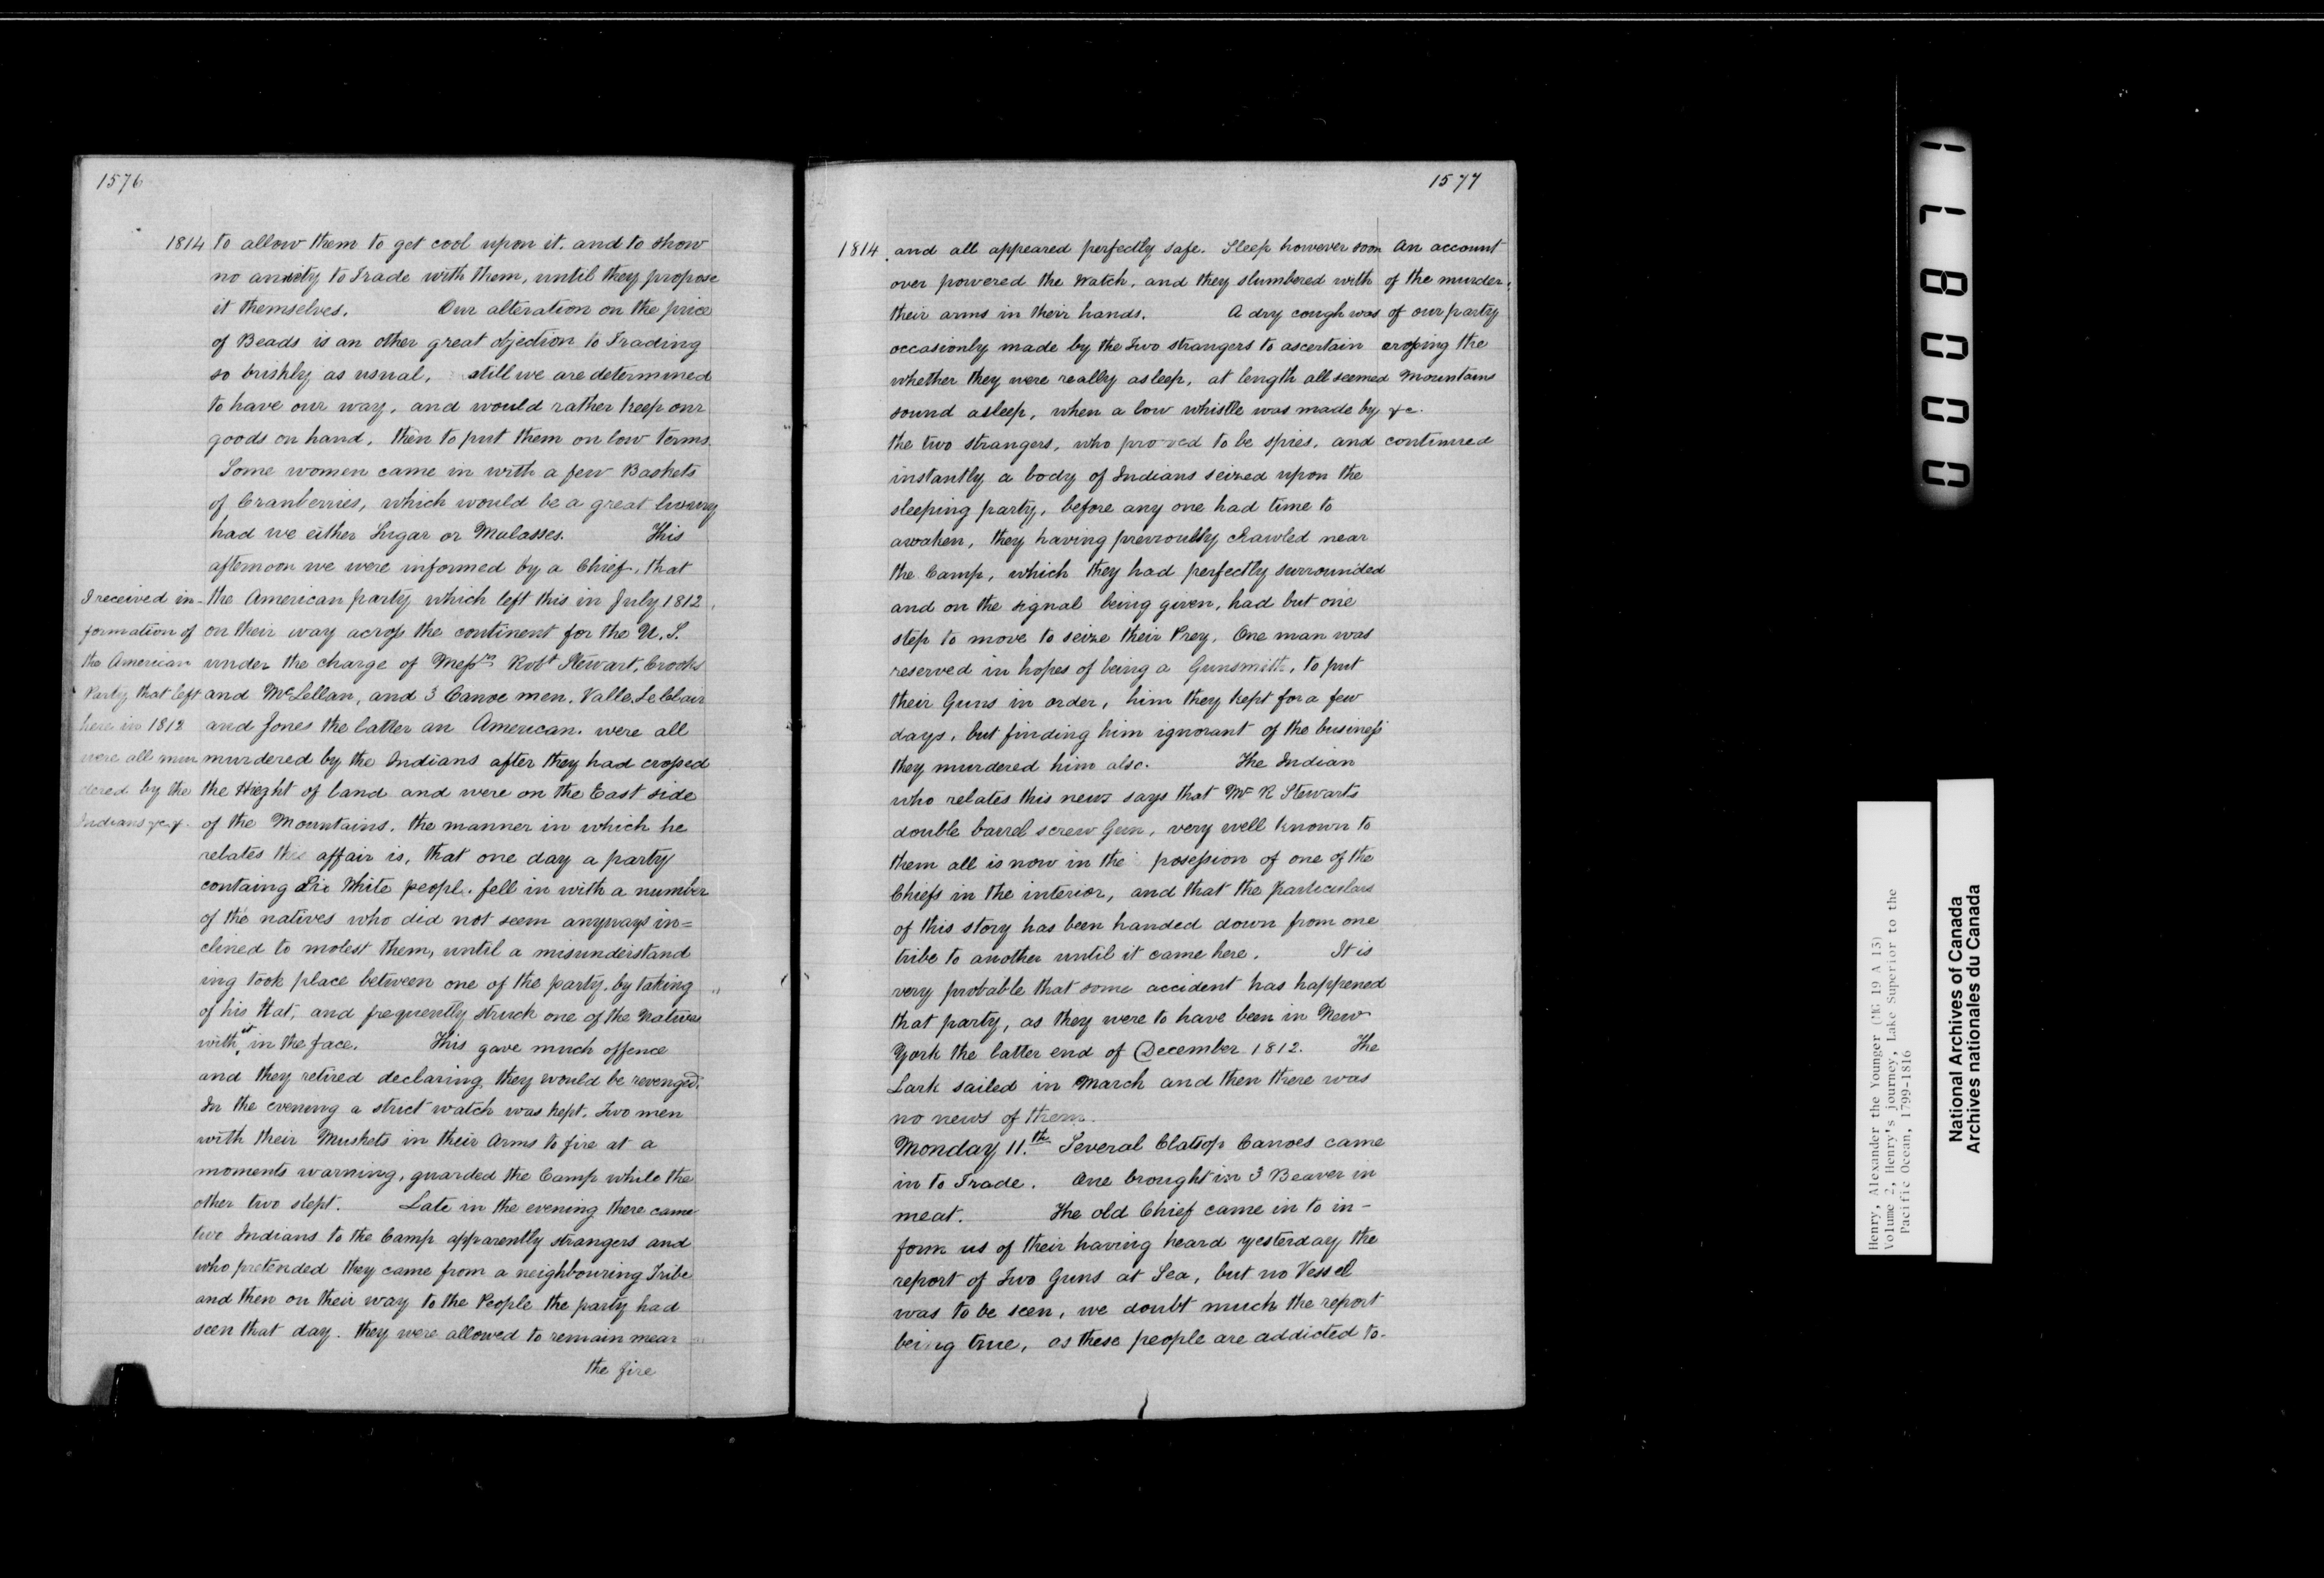 1576
1814 to allow them to get cool upon it. and to show
no anxiety to Trade with them, until they propose
it themselves. Our alteration on the price
of Beads is an other great objection to Trading
so briskly as usual, still we are determined
to have our way, and would rather keep our
goods on hand, then to put them on low terms.
Some women came in with a few Baskets
of Cranberries, which would be a great luxury
had we either Sugar or Mulasses. This
afternoon we were informed by a Chief, that
the American party which left this in July 1812,
on their way across the continent for the U. S.
under the charge of Messrs Robt Stewart, Crooks
and McLellan, and 3 Canoe men. Valle, Le Clair
and Jones the latter an American. were all
murdered by the Indians after they had crossed
the Hieght of land and were on the East side
of the Mountains. the manner in which he
relates the affair is, that one day a party
containg Six White people. fell in with a number
of the natives who did not seem anyways in=
clined to molest them, until a misunderstand
ing took place between one of the party. by taking
of his Hat, and frequently struck one of the Natives
with it in the face. This gave much offence
and they retired declaring they would be revenged.
In the evening a strict watch was kept. Two men
with their Muskets in their Arms to fire at a
moments warning, guarded the Camp while the
other two slept. Late in the evening there came
two Indians to the Camp apparently strangers and
who pretended they came from a neighbouring Tribe
and then on their way to the People the party had
seen that day. they were allowed to remain near
the fire
I received in-
formation of
the American
Party that left
here in 1812
were all mur
dered by the
Indians &c &c.
1577
1814. and all appeared perfectly safe. Sleep however soon
over powered the Watch, and they slumbered with
their arms in their hands. A dry cough was
occasionly made by the Two strangers to ascertain
whether they were really asleep, at length all seemed
sound asleep, when a low whistle was made by
the two strangers, who proved to be spies, and
instantly a body of Indians seized upon the
sleeping party, before any one had time to
awaken, they having previously crawled near
the Camp, which they had perfectly surrounded
and on the signal being given, had but one
step to move to seize their Prey. One man was
reserved in hopes of being a Gunsmith, to put
their Guns in order, him they kept for a few
days, but finding him ignorant of the business
they murdered him also. The Indian
who relates this news says that Mr R Stewarts
double barrel screw Gun, very well known to
them all is now in the posession of one of the
Chiefs in the interior, and that the particulars
of this story has been handed down from one
tribe to another until it came here. It is
very probable that some accident has happened
that party, as they were to have been in New
York the latter end of December 1812. The
Lark sailed in March and then there was
no news of them.
Monday 11.th Several Clatsop Canoes came
in to Trade. One brought in 3 Beaver in
meat. The old Chief came in to in-
form us of their having heard yesterday the
report of Two Guns at Sea, but no Vessel
was to be seen, we doubt much the report
being true, as these people are addicted to-
An account
of the murder
of our party
crossing the
Mountains
&c.
continued
0000871
Henry, Alexander the Younger (MG 19 A 13)
Volume 2, Henry's journey, Lake Superior to the
Pacific Ocean, 1799-1816
National Archives of Canada
Archives nationales du Canada